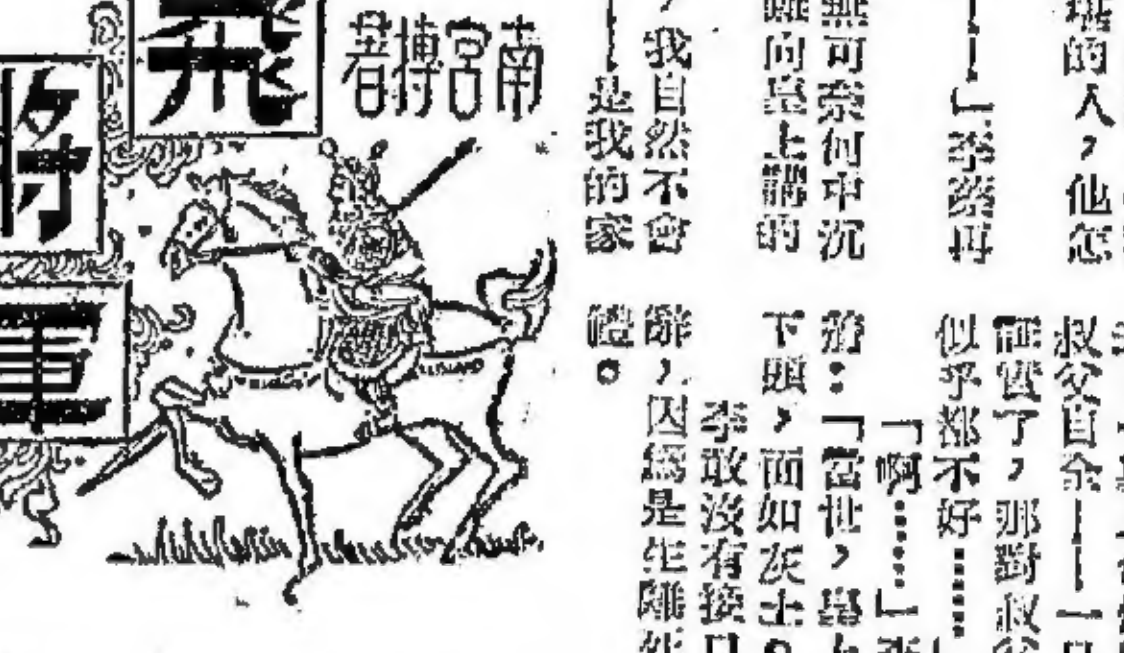 飛
將
軍
南宮搏著
的人，他怎
——」李蔡再
無可奈何中沉
難向皇上講的
，我自然不會
——是我的家
叔父自
實了，那對叔父
似乎都不好……」
「啊……」
：「當世，皇上
下頭，面如灰土。
李敢沒有接口
辭，因爲是生離死
禮。